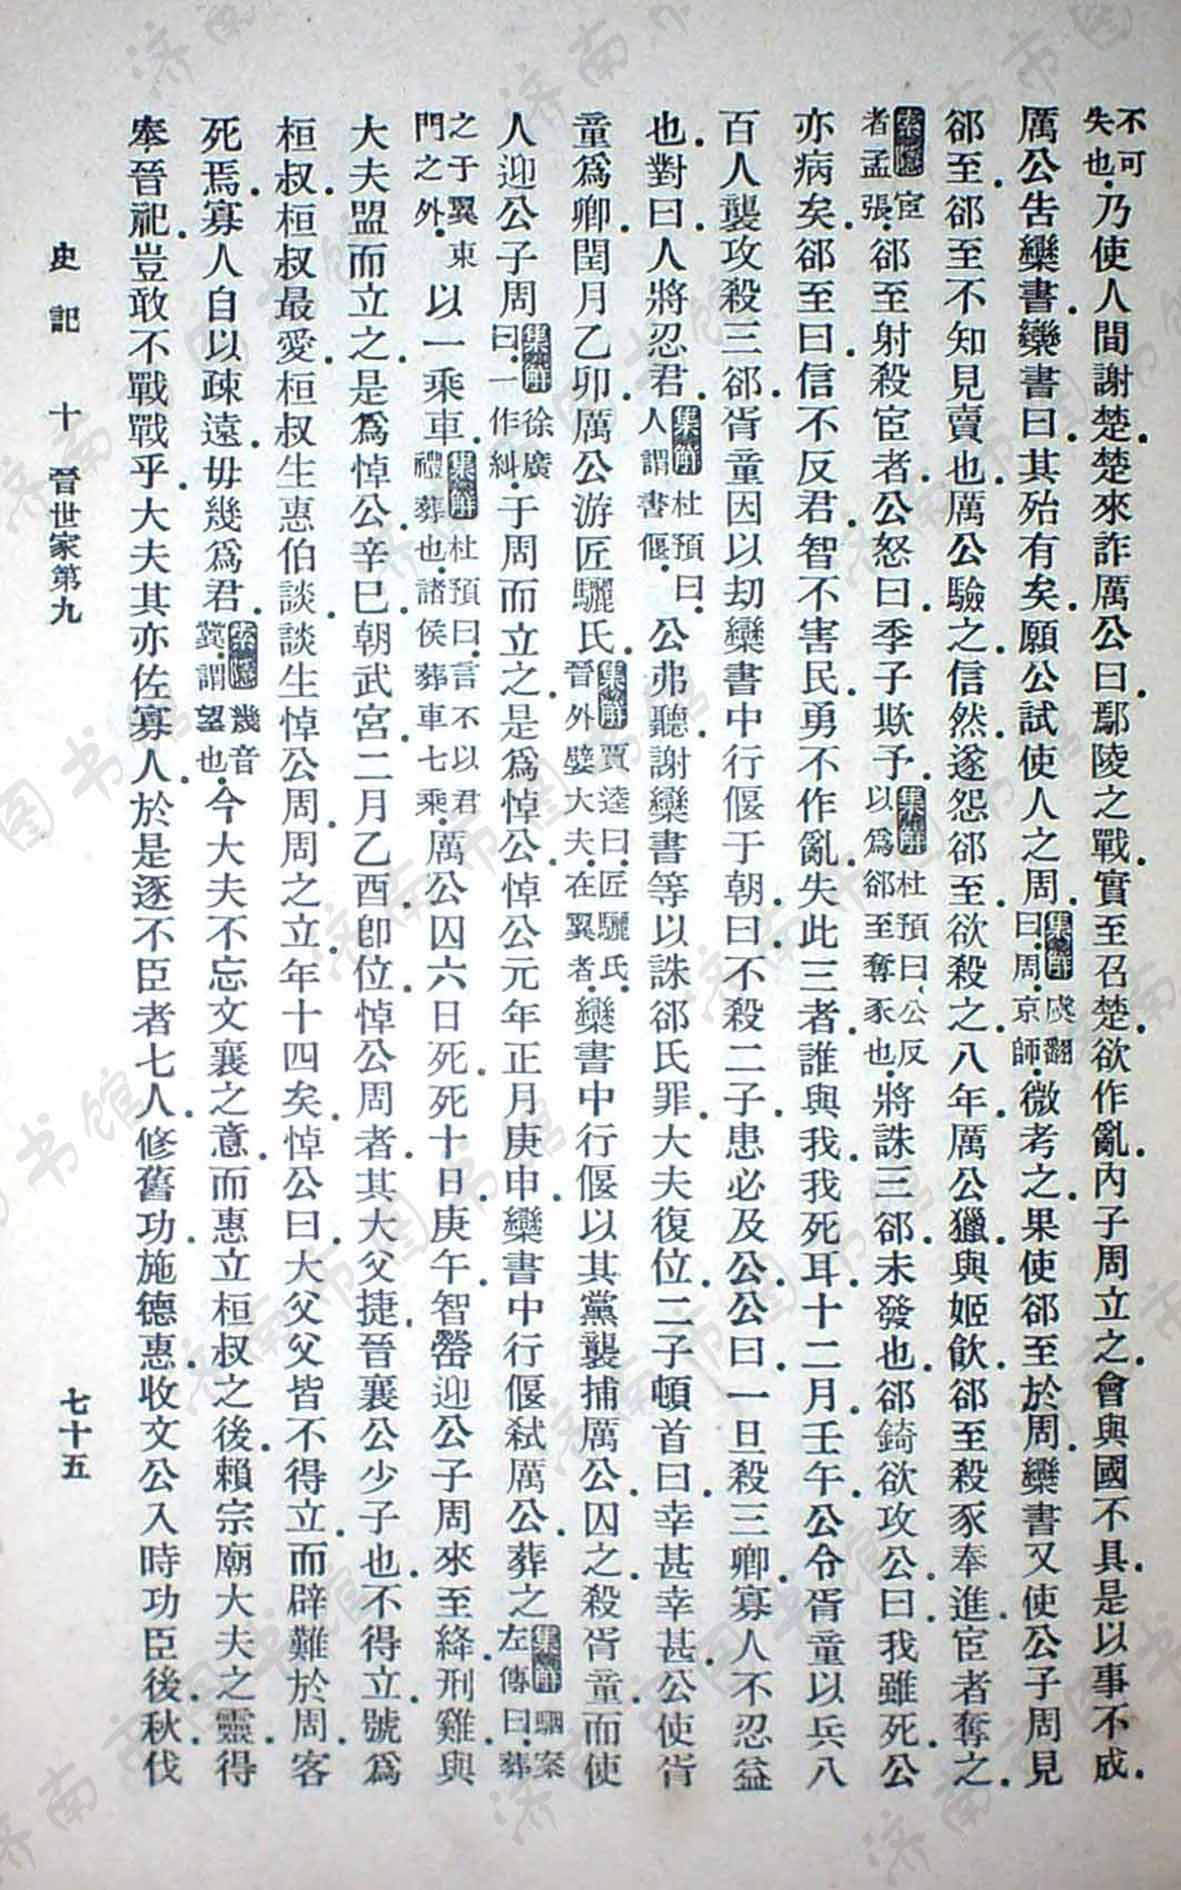 不可失也.乃使人間謝楚.楚來詐厲公曰.鄢陵之戰.實至召楚.欲作亂.內子周立之.會與國不具.是以事不成.
厲公告欒書.欒書曰.其殆有矣.願公試使人之周.集解虞翻曰.周京師.微考之.果使郤至於周.欒書又使公子周見
郤至.郤至不知見賣也.厲公驗之.信然.遂怨郤至.欲殺之.八年.厲公獵.與姬飲.郤至殺豕奉進.宦者奪之.
索隱宦者孟張.郤至射殺宦者.公怒曰.季子欺予.集解杜預曰.公反以爲郤至奪豕也.將誅三郤.未發也.郤錡欲攻公.曰.我雖死.公
亦病矣.郤至曰.信不反君.智不害民.勇不作亂.失此三者.誰與我.我死耳.十二月壬午.公令胥童以兵八
百人襲攻殺三郤.胥童因以劫欒書中行偃于朝.曰.不殺二子.患必及公.公曰.一旦殺三卿.寡人不忍益
也.對曰.人將忍君.集解杜預曰.人謂書偃.公弗聽.謝欒書等以誅郤氏罪.大夫復位.二子頓首曰.幸甚幸甚.公使胥
童爲卿.閏月乙卯.厲公游匠驪氏.集解賈逵曰.匠驪氏.晉外嬖大夫.在翼者.欒書中行偃以其黨襲捕厲公.囚之.殺胥童.而使
人迎公子周集解徐廣曰.一作糾.于周而立之.是爲悼公.悼公元年正月庚申.欒書中行偃弒厲公.葬之集解駰案左傳曰.葬
之于翼東門之外.以一乘車.集解杜預曰.言不以君禮葬也.諸侯葬車七乘.厲公囚六日死.死十日.庚午.智罃迎公子周來至絳.刑雞與
大夫盟而立之.是爲悼公.辛巳.朝武宮.二月乙酉.卽位.悼公周者.其大父捷.晉襄公少子也.不得立.號爲
桓叔.桓叔最愛.桓叔生惠伯談.談生悼公周.周之立.年十四矣.悼公曰.大父父皆不得立.而辟難於周.客
死焉.寡人自以疎遠.毋幾爲君.索隱幾音冀.謂望也.今大夫不忘文襄之意.而惠立桓叔之後.賴宗廟大夫之靈.得
奉晉祀.豈敢不戰戰乎.大夫其亦佐寡人.於是逐不臣者七人.修舊功.施德惠.收文公入時功臣後.秋.伐
史記 十 晉世家第九 七十五